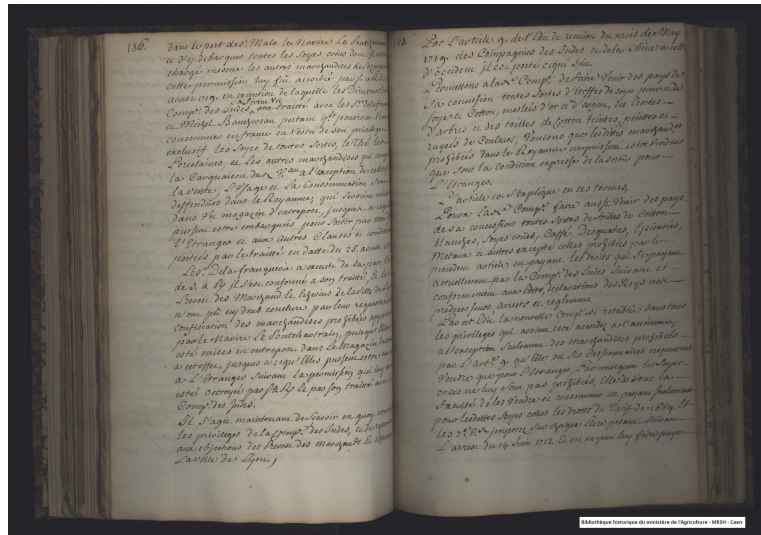 186.
dans le port de St. Malo le Navire Le
et d'y debarquer toutes les Soyes
chargé mesme les autres marchandises de
cette permission luy fut accordée par
aoust 1719. en execution de laquelle les Directeurs
Comp.e des Indes, traitté avec les Srs. Delafran
et Michel portant qu'ils pouront
consommer en france en vertu de son privilege
exclusif les Soyes de toutes Sortes, le Thé les
Porcelaines, et Les autres marchandises qui
la Cargaison du d. Vau. a l'exception de celles
la vente, L'Usage et La Consommation Sont
deffendües dans le Royaume, qui Seroient
dans Un magazin d'entrepost, jusques a ce
pussent estre embarquées pour Sortir par mer
l'Etranger et aux autres Clauses et conditions
portées par le traitté en datte du 25. aoust
Le Sr. Delafranquerie a executé de sa part
de S. A. R. il s'est conformé a son traitté, et les
Prevost des Marchands et Eschevins de la Ville de
n'ont pû ny deub conclure par leur requeste
Confiscation des marchandises prohibées
par le Navire Le Pontchartrain, puisqu'Elles
esté mises en entrepost dans Le Magazin
a cet effet, jusques a ce qu'Elles pussent estre
a L'Etranger Suivant la permission qui luy
esté octroyée par S. A. R. et par son traitté avec
Comp.e des Indes.
Il S'agit maintenant de scavoir en quoy
les privileges de la Comp.e des Indes, et de
aux objections des Prevost des Marchands et Eschevins
La Ville de Lyon,
187.
Par L'article 9. de l'Edit de reunion du mois de May
1719. des Compagnies des Indes et de la Chine a celle
d'occident il est porté ce qui suit
Permettons a lad. Comp.e de faire Venir des pays de
Sa concession toutes Sortes d'Etoffes de soye pure et de
soye et Cotton, meslées d'or et d'argent, des Ecorces
d'arbres et des toilles de Cotton teintes, peintes et
rayées de Couleurs, Voulons que lesdittes marchandises
prohibées dans le Royaume ne puissent estre Vendües
que sous la condition expresse de la sortie pour
L'Etranger.
L'article 10. S'explique en ces termes,
Poura lad. Comp.e faire aussi Venir des pays
de sa concession toutes Sortes de toilles de Cotton
blanches, Soyes crües, Caffé, Drogueries, Epiceries,
Metaux et autres excepté celles prohibées par le
precedent article en payant les droits qui Se payent
actuellement par la Comp.e des Indes Suivant et
conformement aux Edits, declarations des Roys nos
predecesseurs arrests et reglemens.
Par cet Edit la nouvelle Comp.e est retablie dans tous
les privileges qui avoient esté acordez a l'ancienne,
a l'exception Seulement des marchandises prohibées
par l'Art.e 9. qu'Elle ou Ses Cessionnaires ne peuvent
Vendre que pour l'Etranger. Par consequent les Soyes
crües ne luy Sont pas prohibées, Elle a donc la
faculté de les Vendre et consommer en payant Seulement
pour lesdittes Soyes crües les droits du Tarif de 1664. Et
les imposez Sur chaque Livre pesant Suivant
L'arrest du 14 Juin 1712. Et on ne peut luy faire payer
Bibliothèque historique du ministère de l'Agriculture - MRSH - Caen